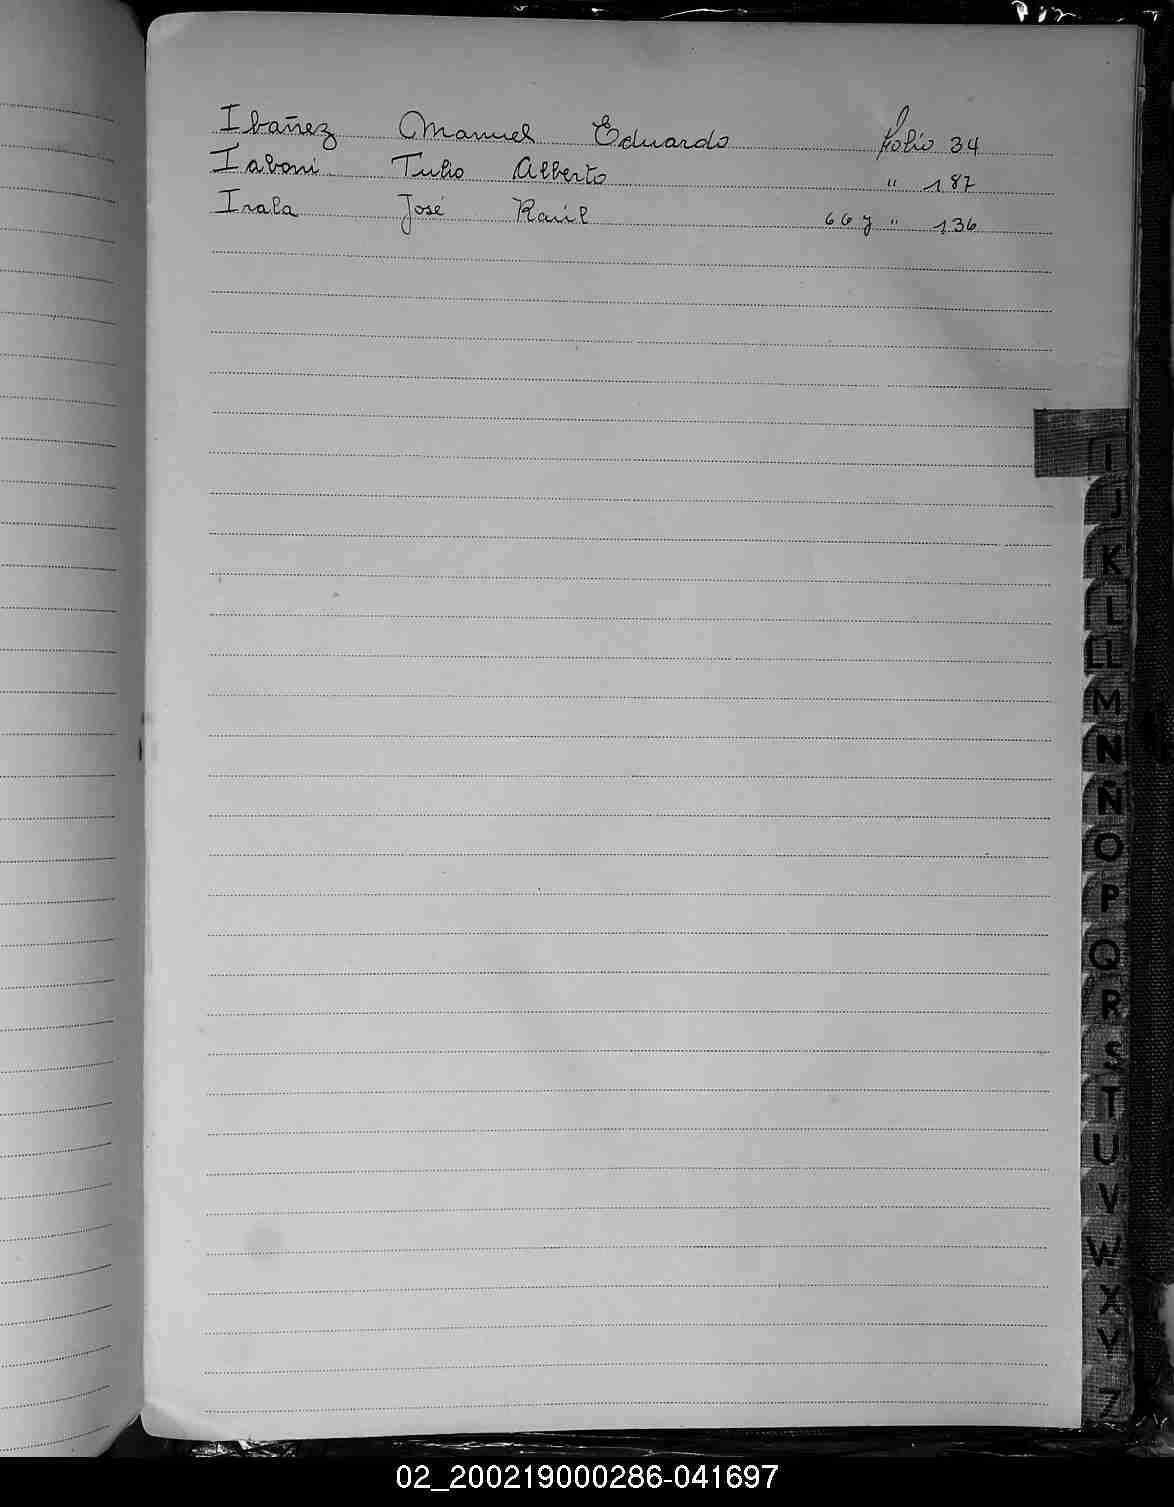 Ibañez Manuel Eduardo folio 34
Iaboni Tulio Alberto " 187
Irala José Raúl 66 y " 136
I
J
K
L
LL
M
N
Ñ
O
P
Q
R
S
T
U
V
W
X
Y
Z
02_200219000286-041697